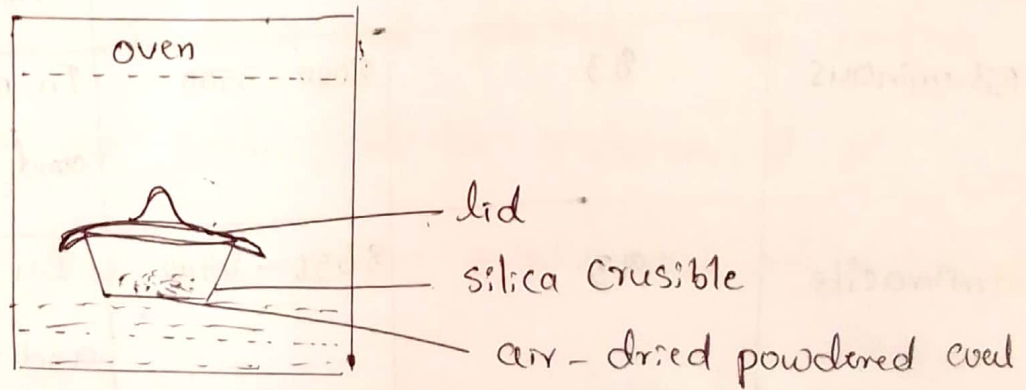 oven
lid
silica Crusible
air-dried powdered coal